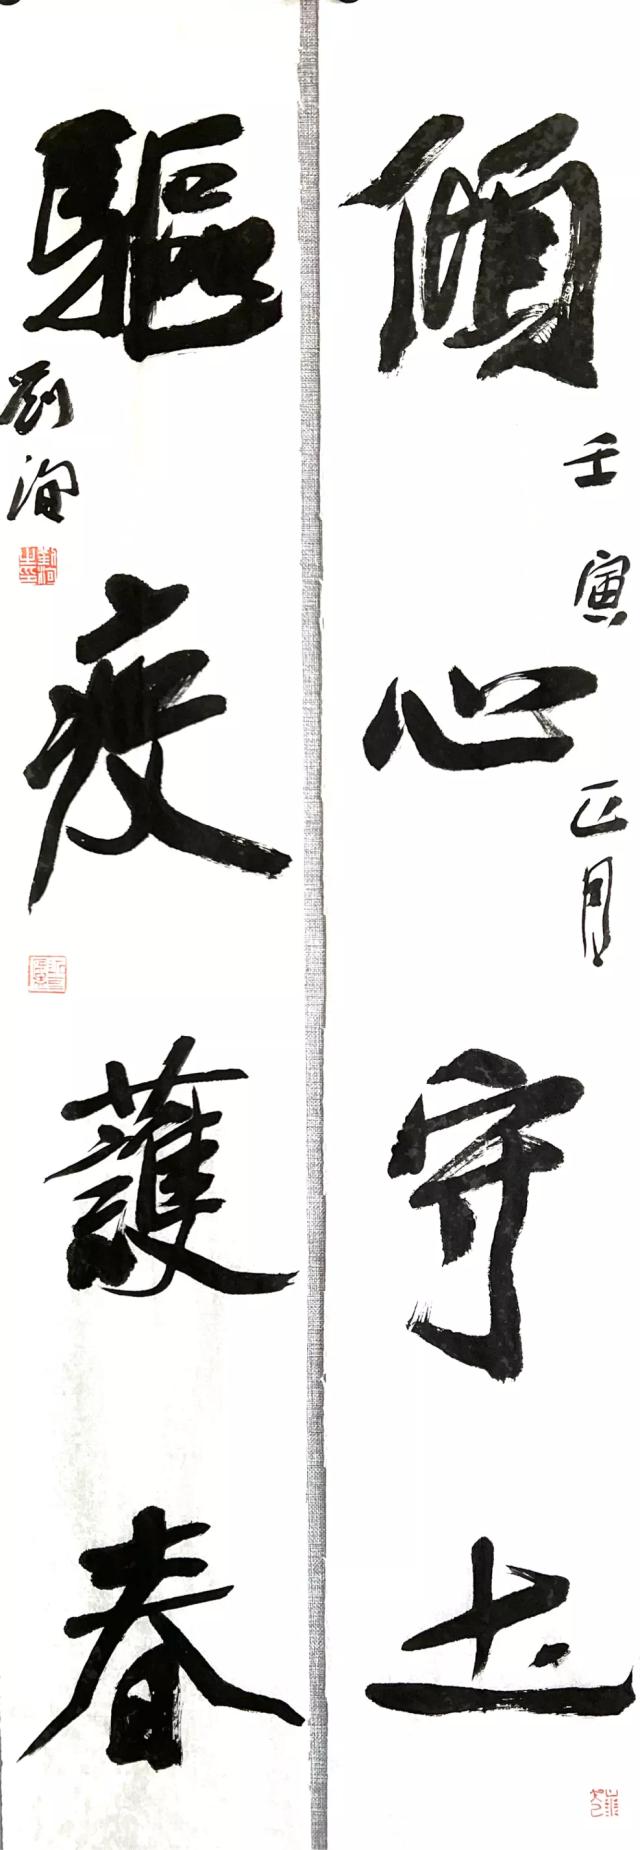 傾心守土
壬寅正月
驅疫護春
劉洵